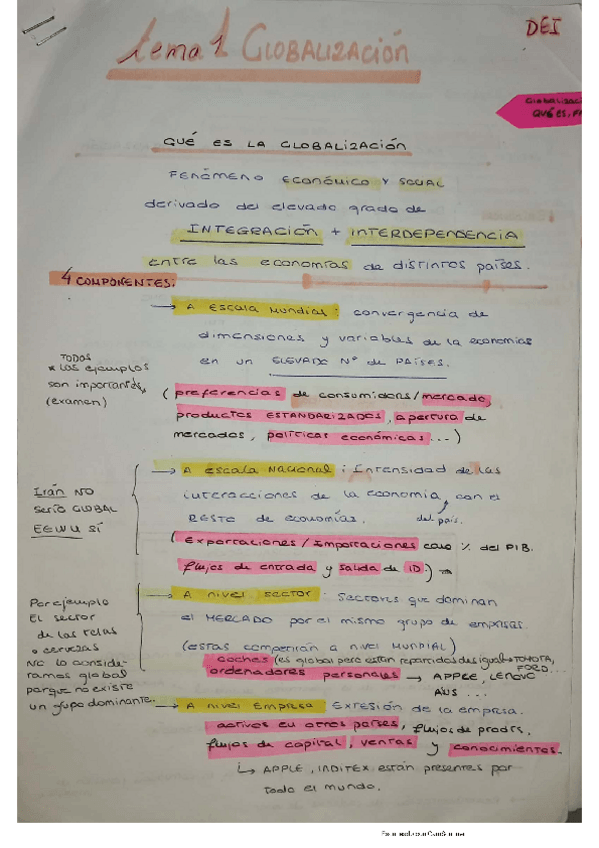 DEI
tema 1 GLOBALIZACIÓN
QUÉ ES
QUÉ ES LA GLOBALIZACIÓN
FENÓMENO ECONÓMICO Y SOCIAL
derivado del elevado grado de
INTEGRACIÓN + INTERDEPENDENCIA
entre las economías de distintos países.
4 COMPONENTES.
→ A ESCALA MUNDIAL: convergencia de
dimensiones y variables de la economías
en un ELEVADO Nº de PAÍSES.
TODOS
* los ejemplos
son importantes
(examen)
(preferencias de consumidores/mercado,
productos ESTANDARIZADOS, apertura de
mercados, políticas económicas...)
→ A escala Nacional: Intensidad de las
interacciones de la economía con el
del país.
RESTO de economías.
Irán NO
sería GLOBAL
EEUU SÍ
(exportaciones/Importaciones como % del PIB.
flujos de entrada y salida de ID.)
→ A nivel sector: Sectores que dominan
el MERCADO por el mismo grupo de empresas.
(estas competirán a nivel MUNDIAL)
Por ejemplo
El sector
de las telas
o cervezas
NO lo conside-
ramos global
porque no existe
un grupo dominante.
coches (es global pero están repartidos desigual → TOYOTA,
FORD...
ordenadores personales → APPLE, LENOVO
ASUS ...
→ A nivel Empresa Extesión de la empresa.
activos en otros países, flujos de prodts,
flujos de capital, ventas y conocimientos.
↳ APPLE, INDITEX están presentes por
todo el mundo.